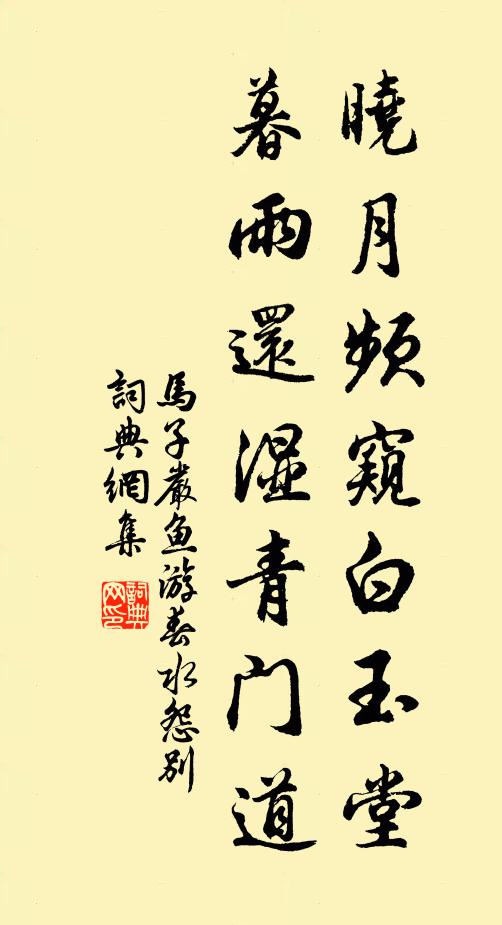 曉月頻窺白玉堂
暮雨還濕青門道
馬子嚴鱼游春水怨别
詞典網集
詞典
网印